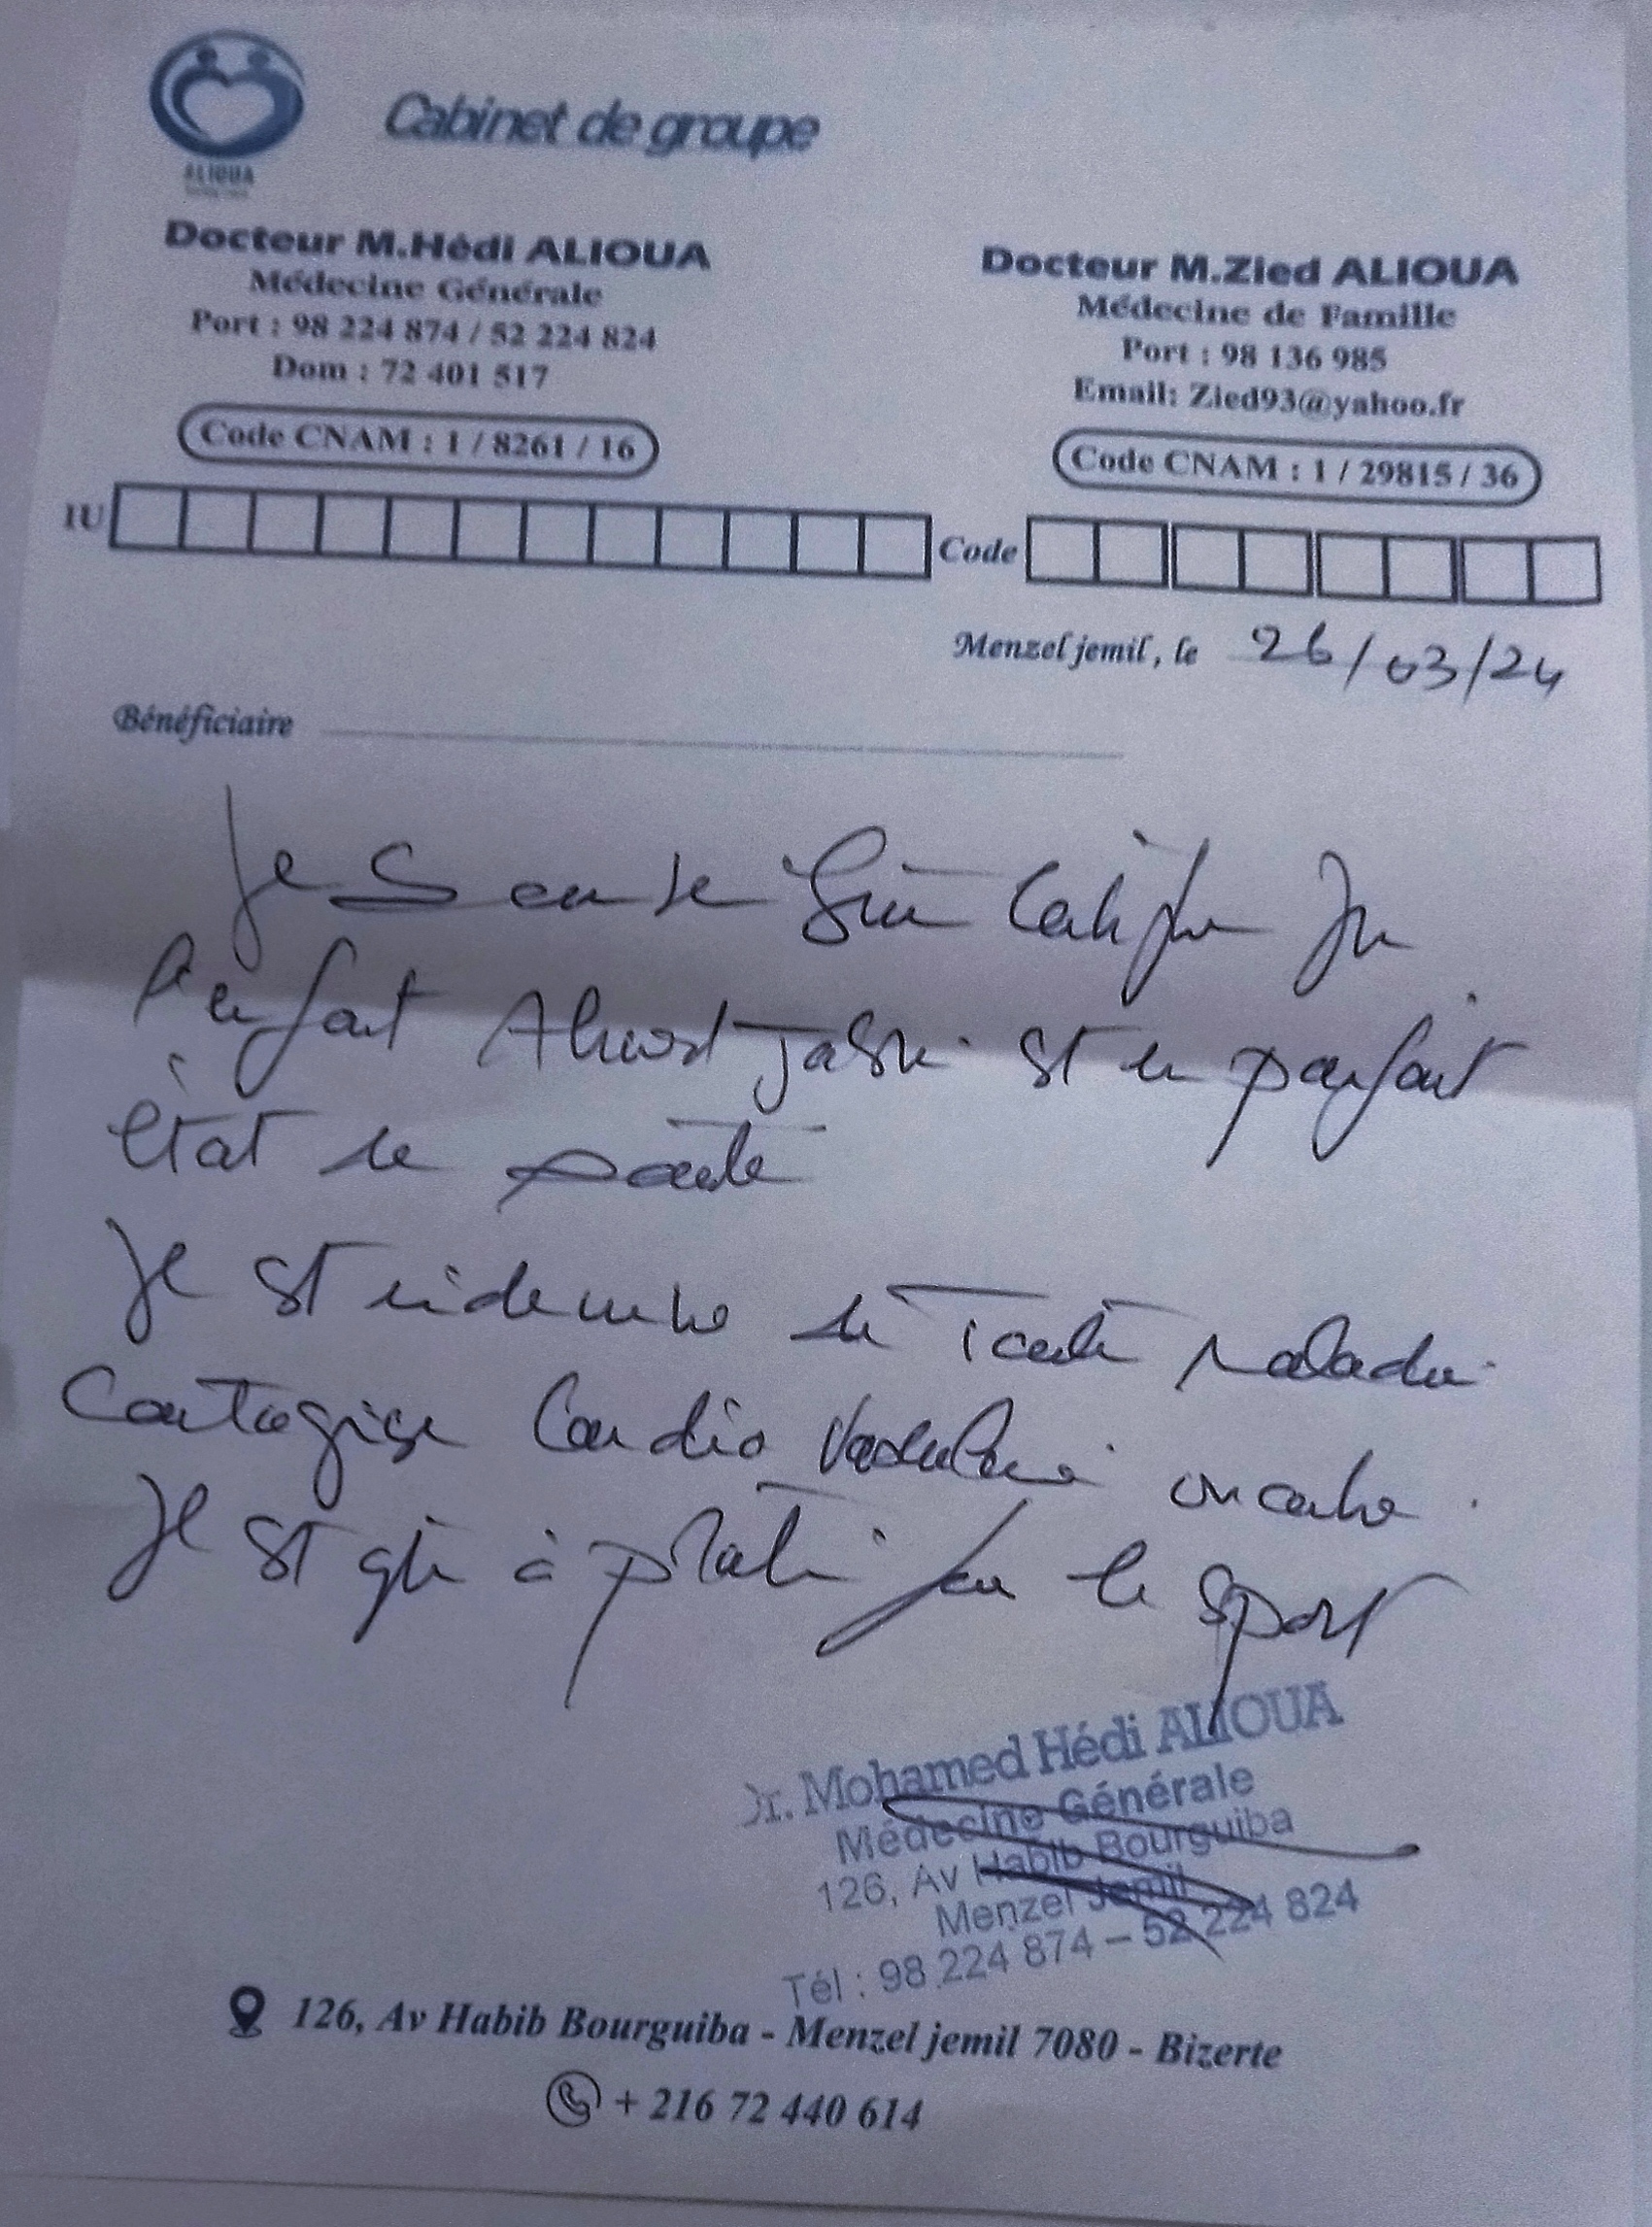 ALIOUA
Cabinet de groupe
Docteur M.Hédi ALIOUA
Médecine Générale
Port : 98 224 874 / 52 224 824
Dom : 72 401 517
Code CNAM : 1 / 8261 / 16
Docteur M.Zied ALIOUA
Médecine de Famille
Port : 98 136 985
Email: Zied93@yahoo.fr
Code CNAM : 1 / 29815 / 36
IU
Code
Menzel jemil, le 26/03/24
Bénéficiaire
Je certifie
l'enfant est en parfait
état de santé
Il est indemne de toute maladie
contagieuse cardio vasculaire
Il est apte à pratiquer le sport
Dr. Mohamed Hédi ALIOUA
Médecine Générale
126, Av Habib Bourguiba
Menzel Jemil
Tél : 98 224 874 – 52 224 824
126, Av Habib Bourguiba - Menzel jemil 7080 - Bizerte
+ 216 72 440 614